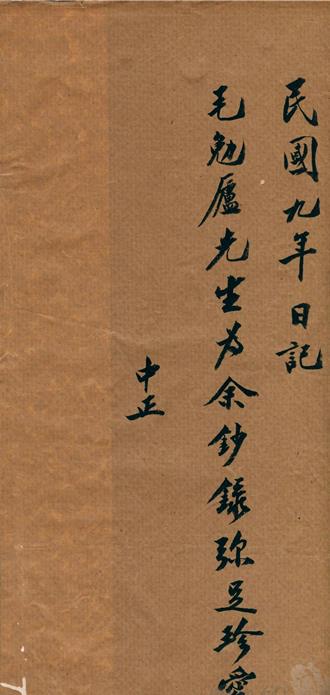 民國九年日記
毛勉廬先生為余鈔錄彌足珍愛
中正